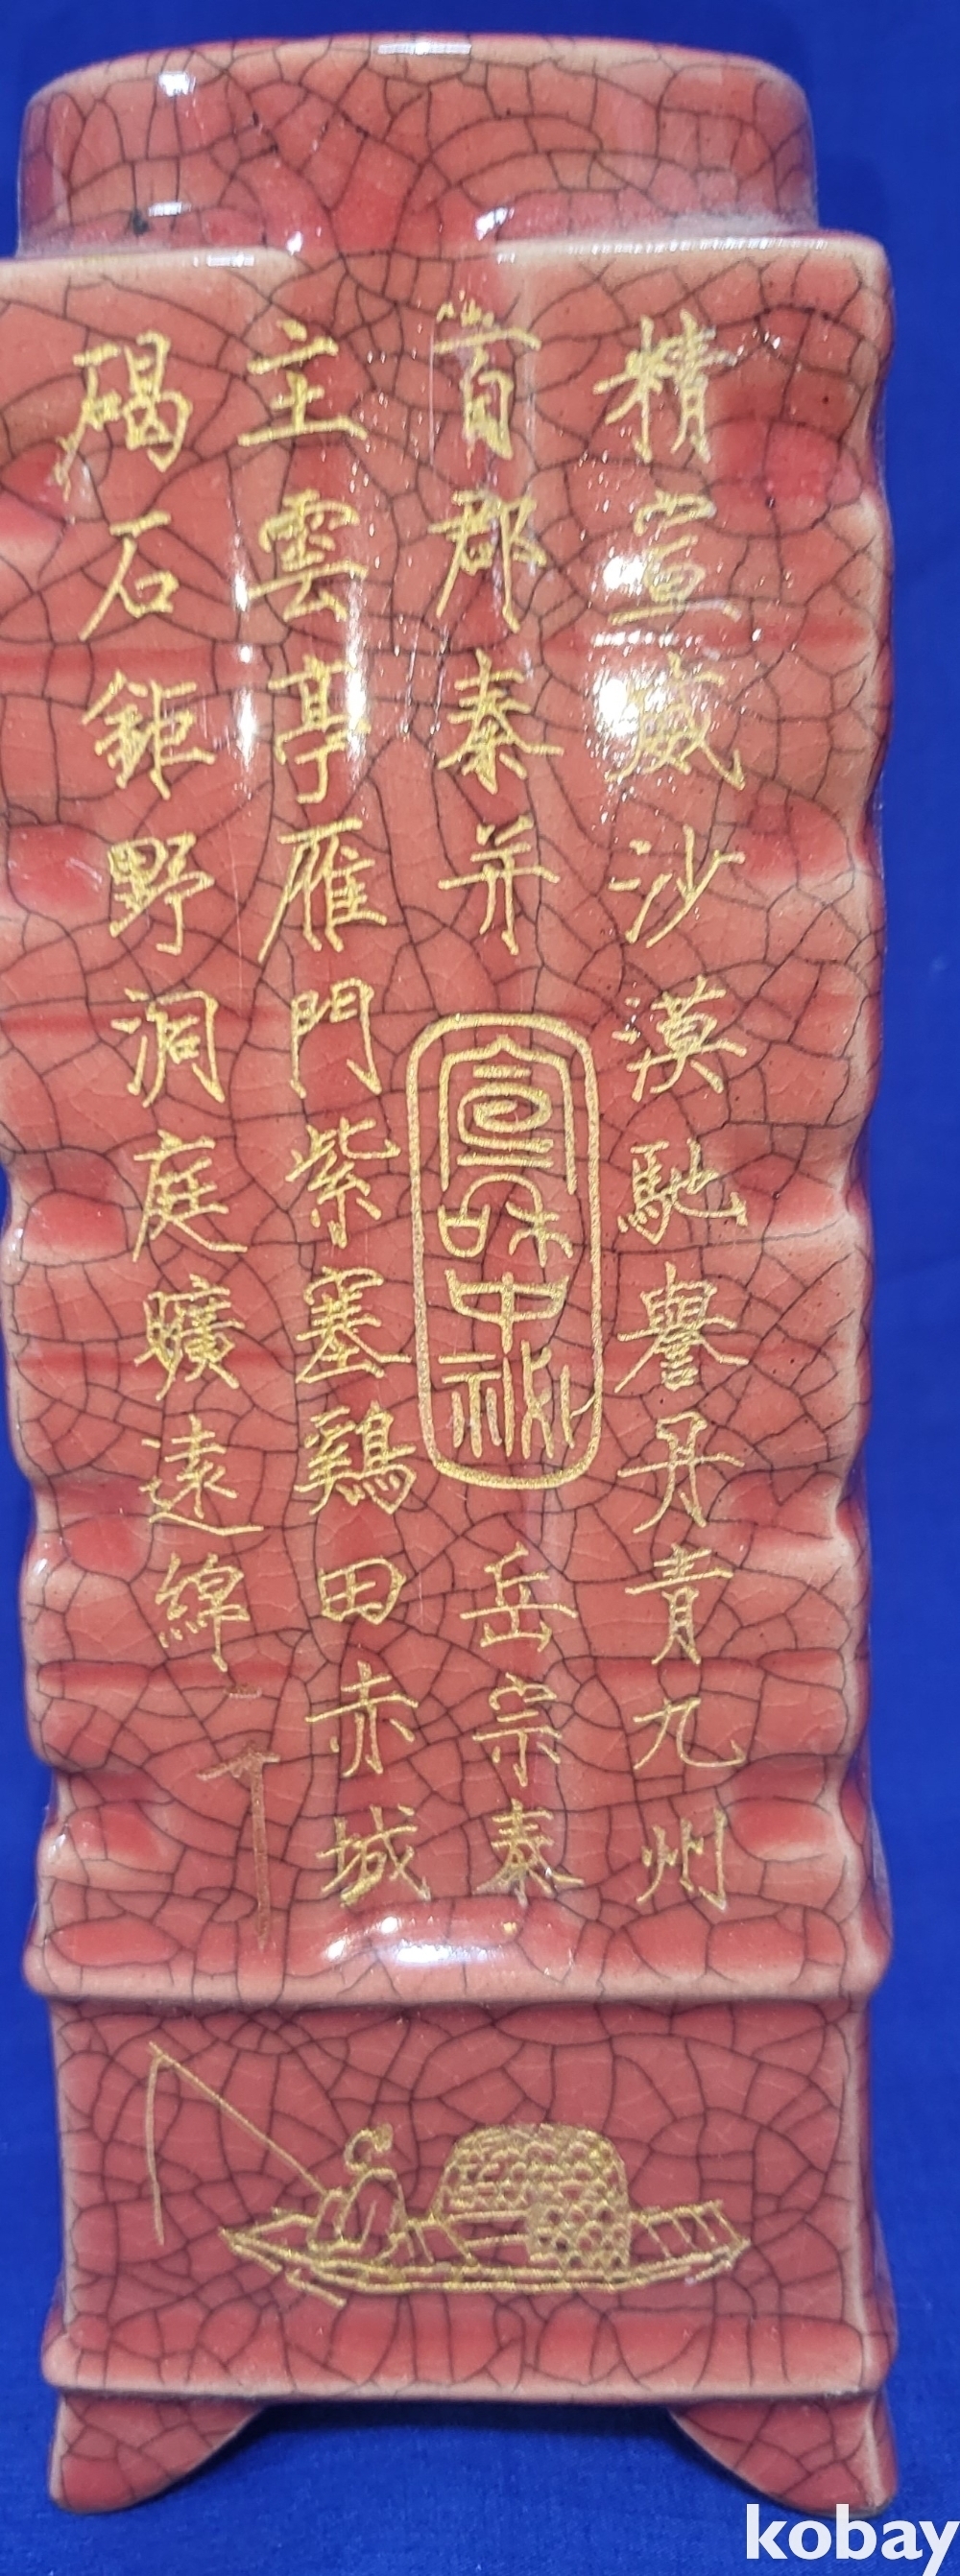 精宣威沙漠馳譽丹青九州
百郡秦并
宣和中祕
岳宗泰
主雲亭雁門紫塞鷄田赤城
碣石鉅野洞庭曠遠綿
kobay